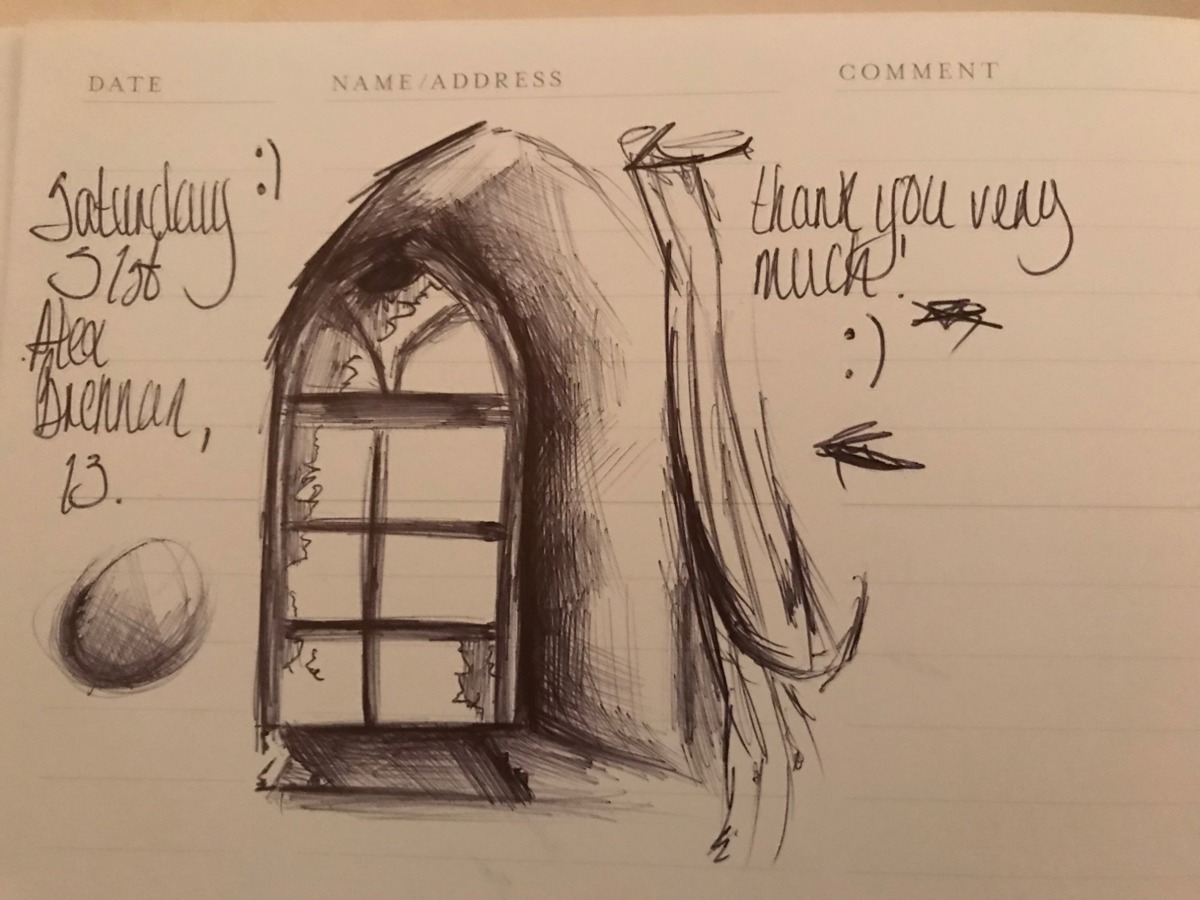 DATE NAME/ADDRESS COMMENT
Saturday :)
31st
Alex
Brennan,
13.
thank you very
much!
:)